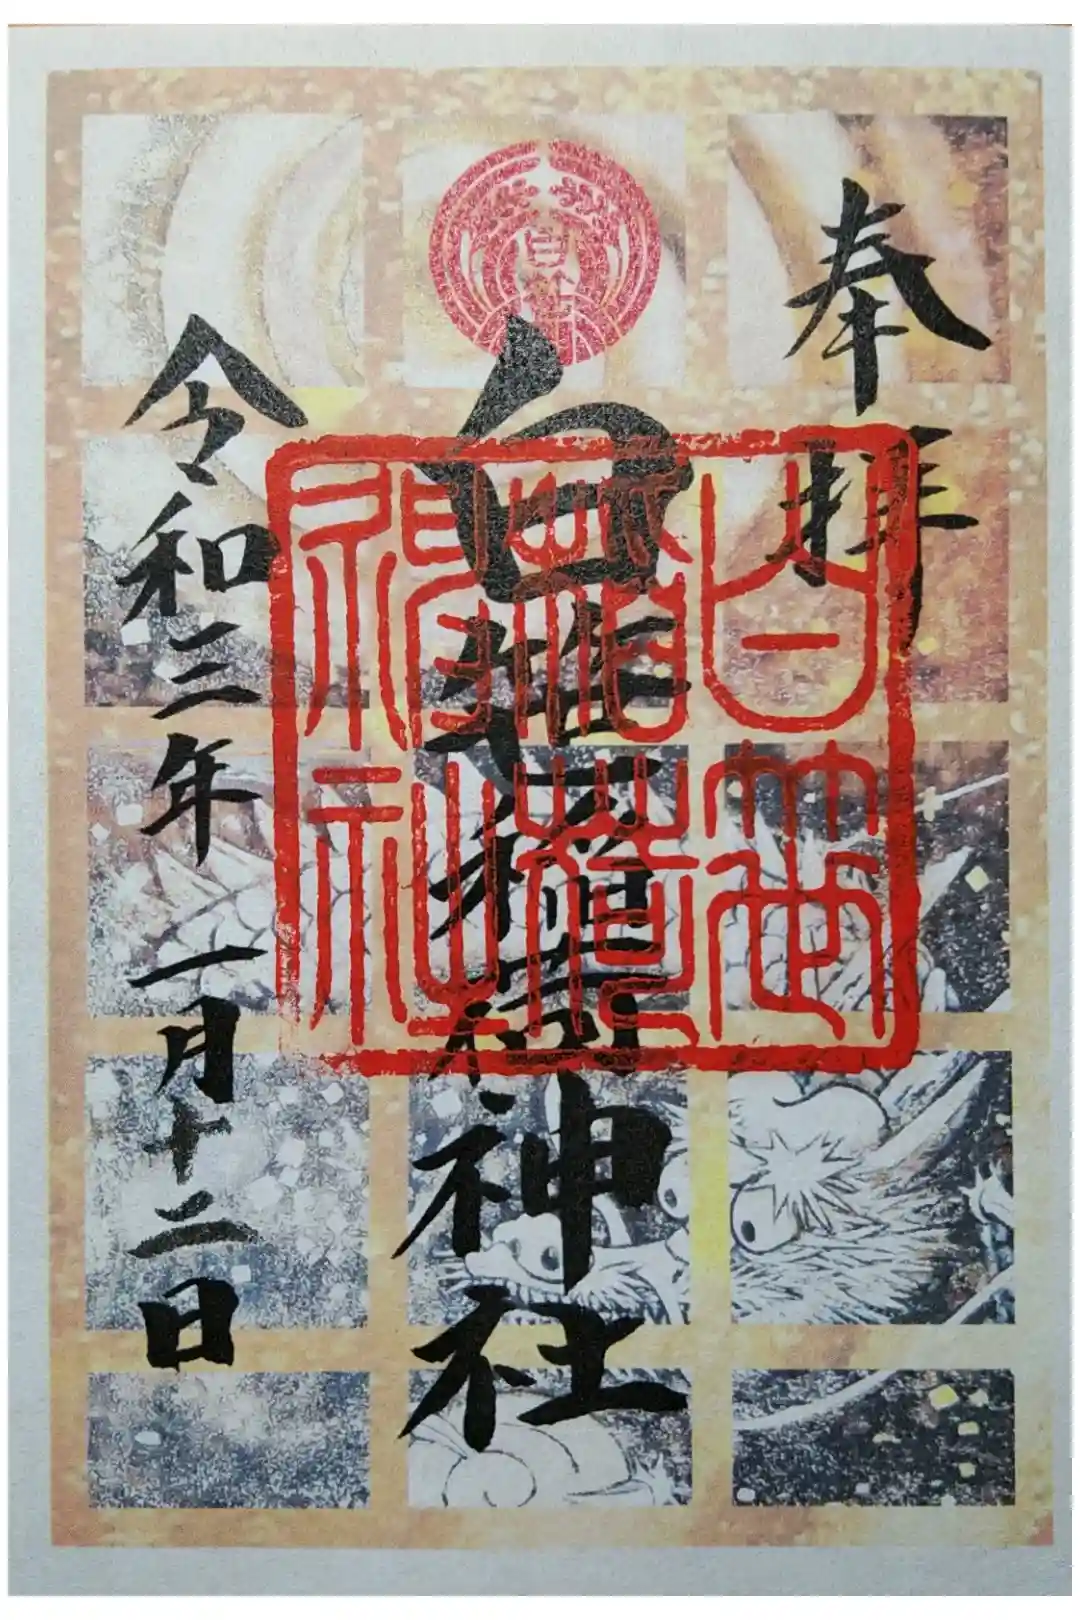 奉拝
白笹稲荷神社
令和三年 一月十二日
白笹
稲荷
神社
白笹